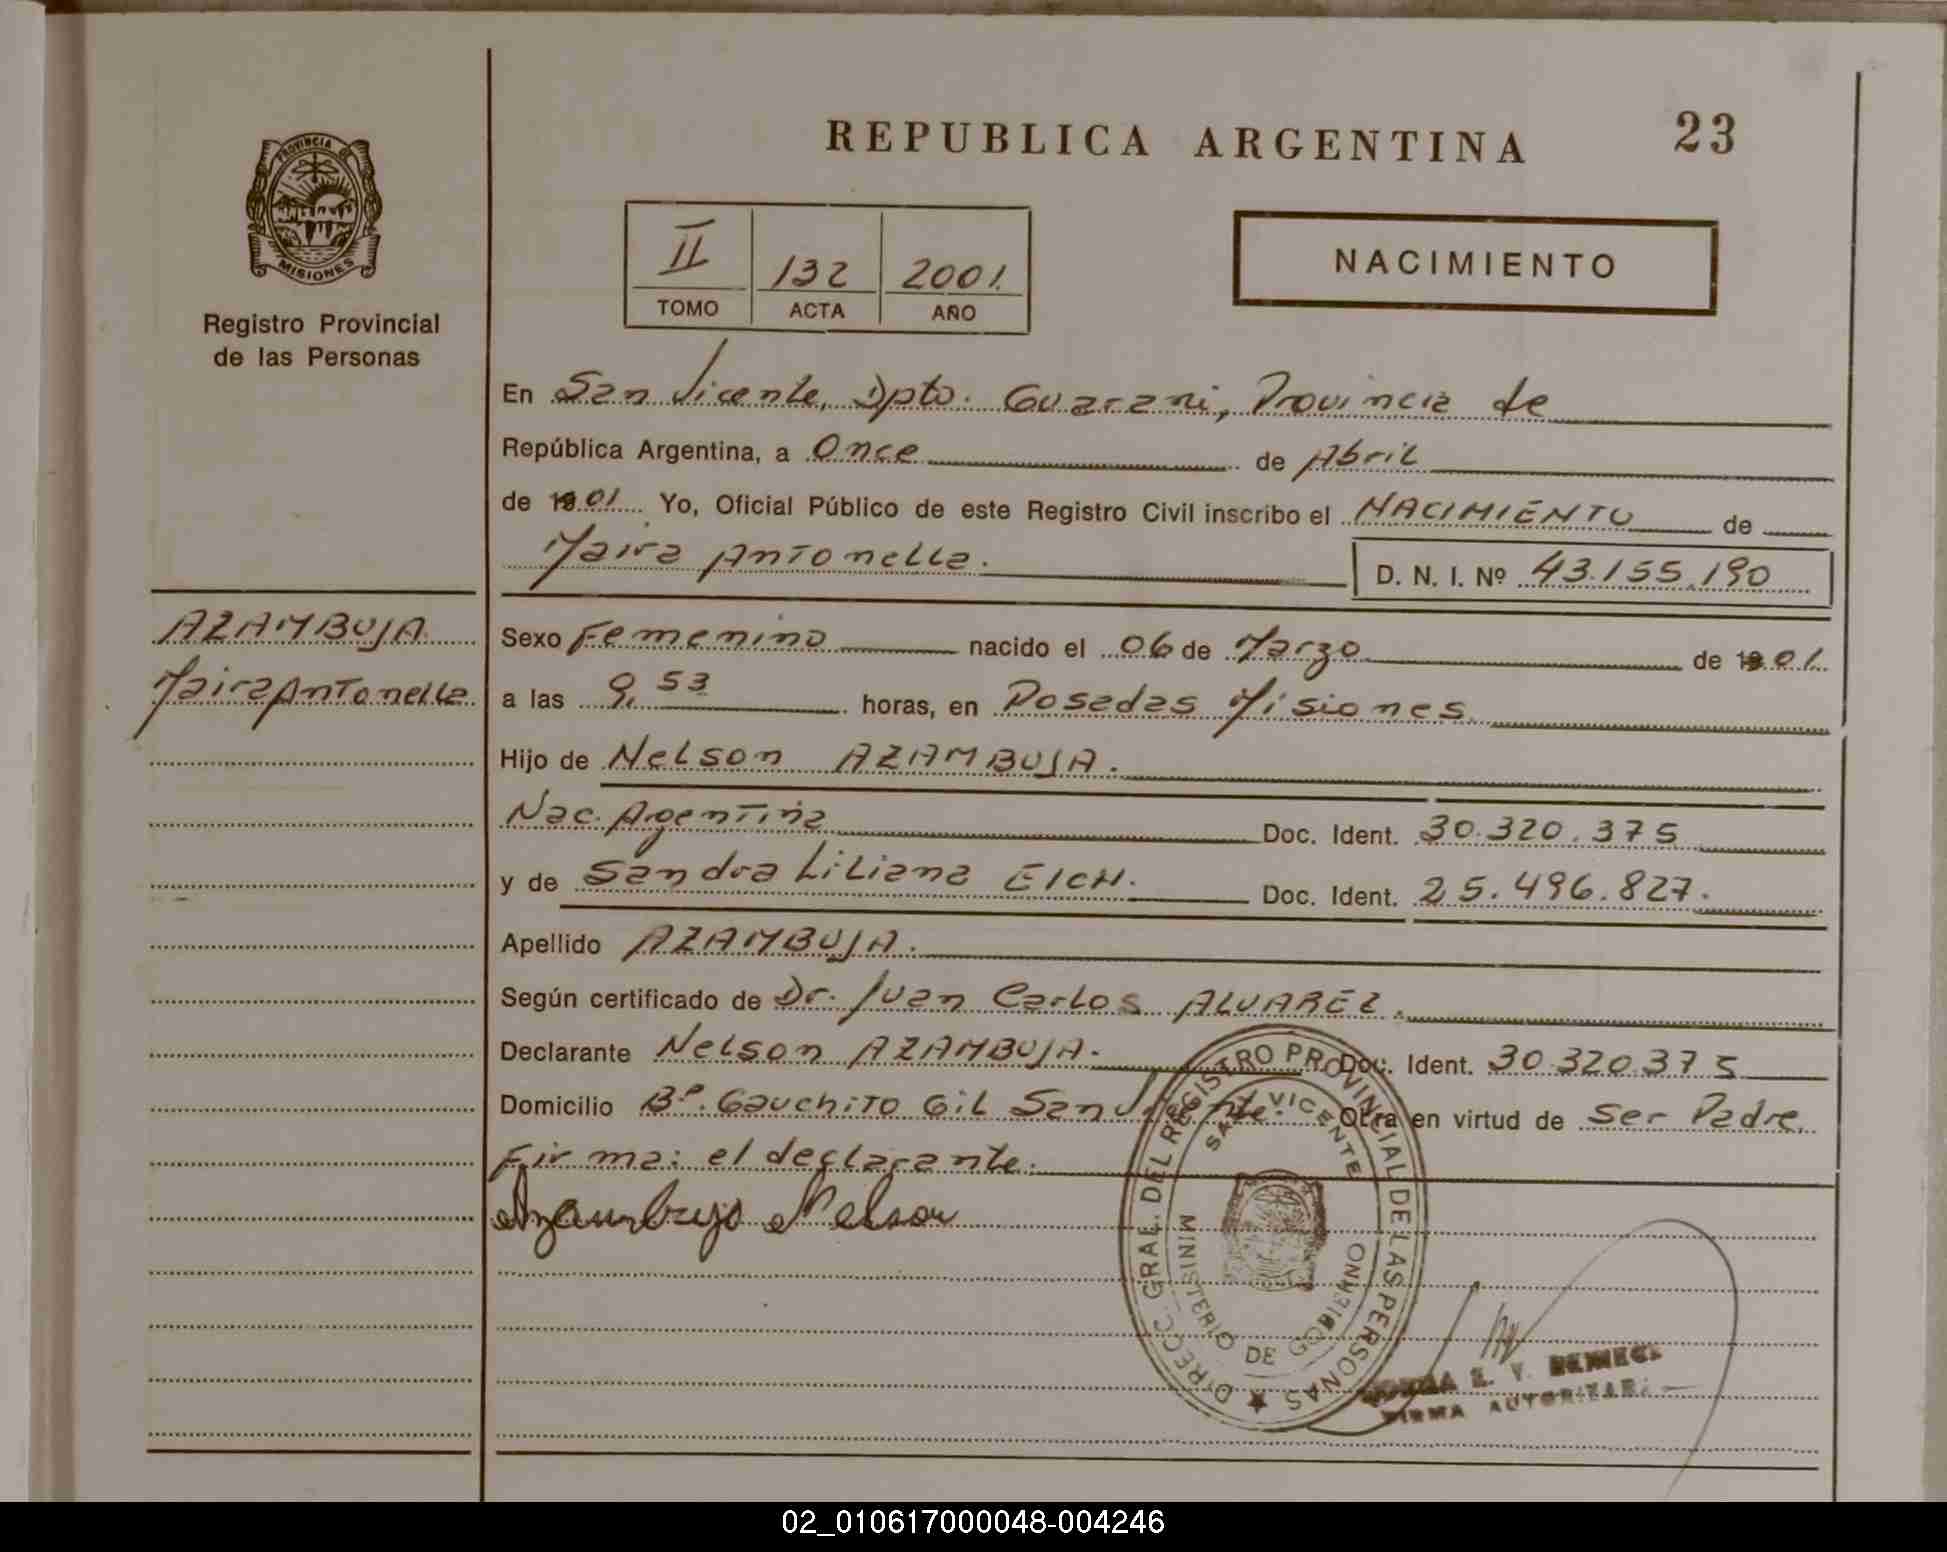 REPUBLICA ARGENTINA 23
PROVINCIA DE
MISIONES
Registro Provincial
de las Personas
II 132 2001.
TOMO ACTA AÑO
NACIMIENTO
En San Vicente, Dpto. Guarani, Provincia de
República Argentina, a Once de Abril
de 01 Yo, Oficial Público de este Registro Civil inscribo el NACIMIENTO de
Maira Antonella. D. N. I. Nº 43.155.190
AZAMBUJA
Maira Antonella
Sexo Femenino nacido el 06 de Marzo de 01.
a las 9,53 horas, en Posadas Misiones.
Hijo de Nelson AZAMBUJA.
Nac. Argentina Doc. Ident. 30.320.375
y de Sandra Liliana EICH. Doc. Ident. 25.496.827.
Apellido AZAMBUJA.
Según certificado de Dr. Juan Carlos ALVAREZ.
Declarante Nelson AZAMBUJA. Doc. Ident. 30.320.375
Domicilio Bº. Gauchito Gil San Vicente. Obra en virtud de Ser Padre.
Firma: el declarante.
Azambuja Nelson
DIRECC. GRAL. DEL REGISTRO PROVINCIAL DE LAS PERSONAS
SAN VICENTE
MINISTERIO DE GOBIERNO
E. V.
FIRMA AUTORIZADA
02_010617000048-004246